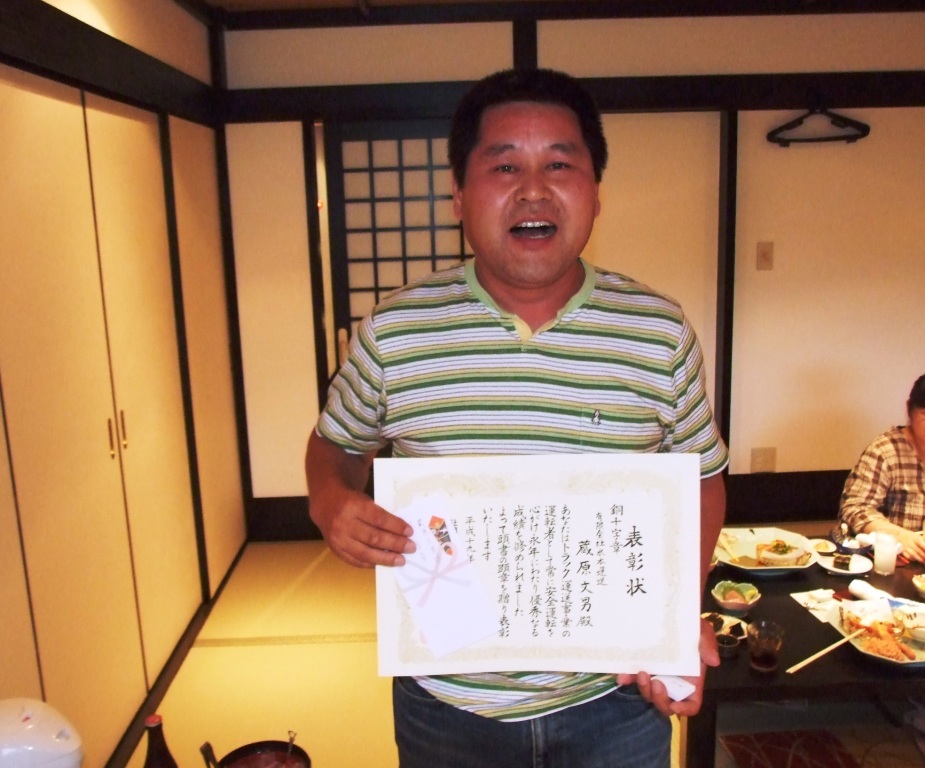 表彰状
銅十字章
有限会社水本運送
蔵原文男殿
あなたはトラック運送事業の
運転者として常に安全運転を
心がけ永年にわたり優秀なる
成績を修められました
よって頭書の顕章を贈り表彰
いたします
平成十九年